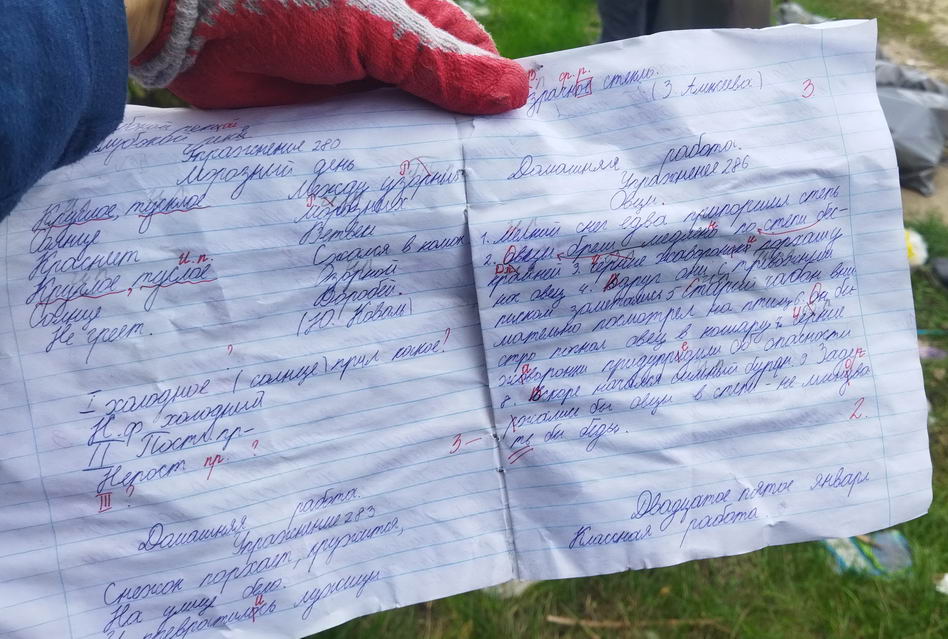 Упражнение 280
Морозный день
Круглое, тусклое
Солнце
Краснеет
и.п.
Круглое, тусклое
Солнце
Не греет.
Между узорных
Морозных
Ветвей
Сжался в комок
Озорной
Воробей.
(Ю. Коваль)
?
I холодное (солнце) прил какое?
Н.ф. холодный
II Пост. пр-
Непост пр. ?
III ?
3-
Домашняя работа.
Упражнение 283
Снежок порхает, кружится,
На улице бело.
И превратились лужицы
ф. р.
стекло.
(З. Александрова)
3
Домашняя работа.
Упражнение 286
Овцы.
1. Мелкий снег едва припорошил степь
2. Овцы брели медлено по степи бес-
крайней 3. Черние жаворонки
нок овец 4. Вдруг они с тревожным
писком заметались 5 Старый чабан вни
мательно посмотрел на птиц 6. Он бы
стро погнал овец в кошару 7 Черние
жаворонки придупредили об опасности
8. Вскоре начался сильный буран. 9 Заде
ржались бы овцы в степи - не миновать
бы беды.
2.
Двадцатое пятое января
Классная работа.